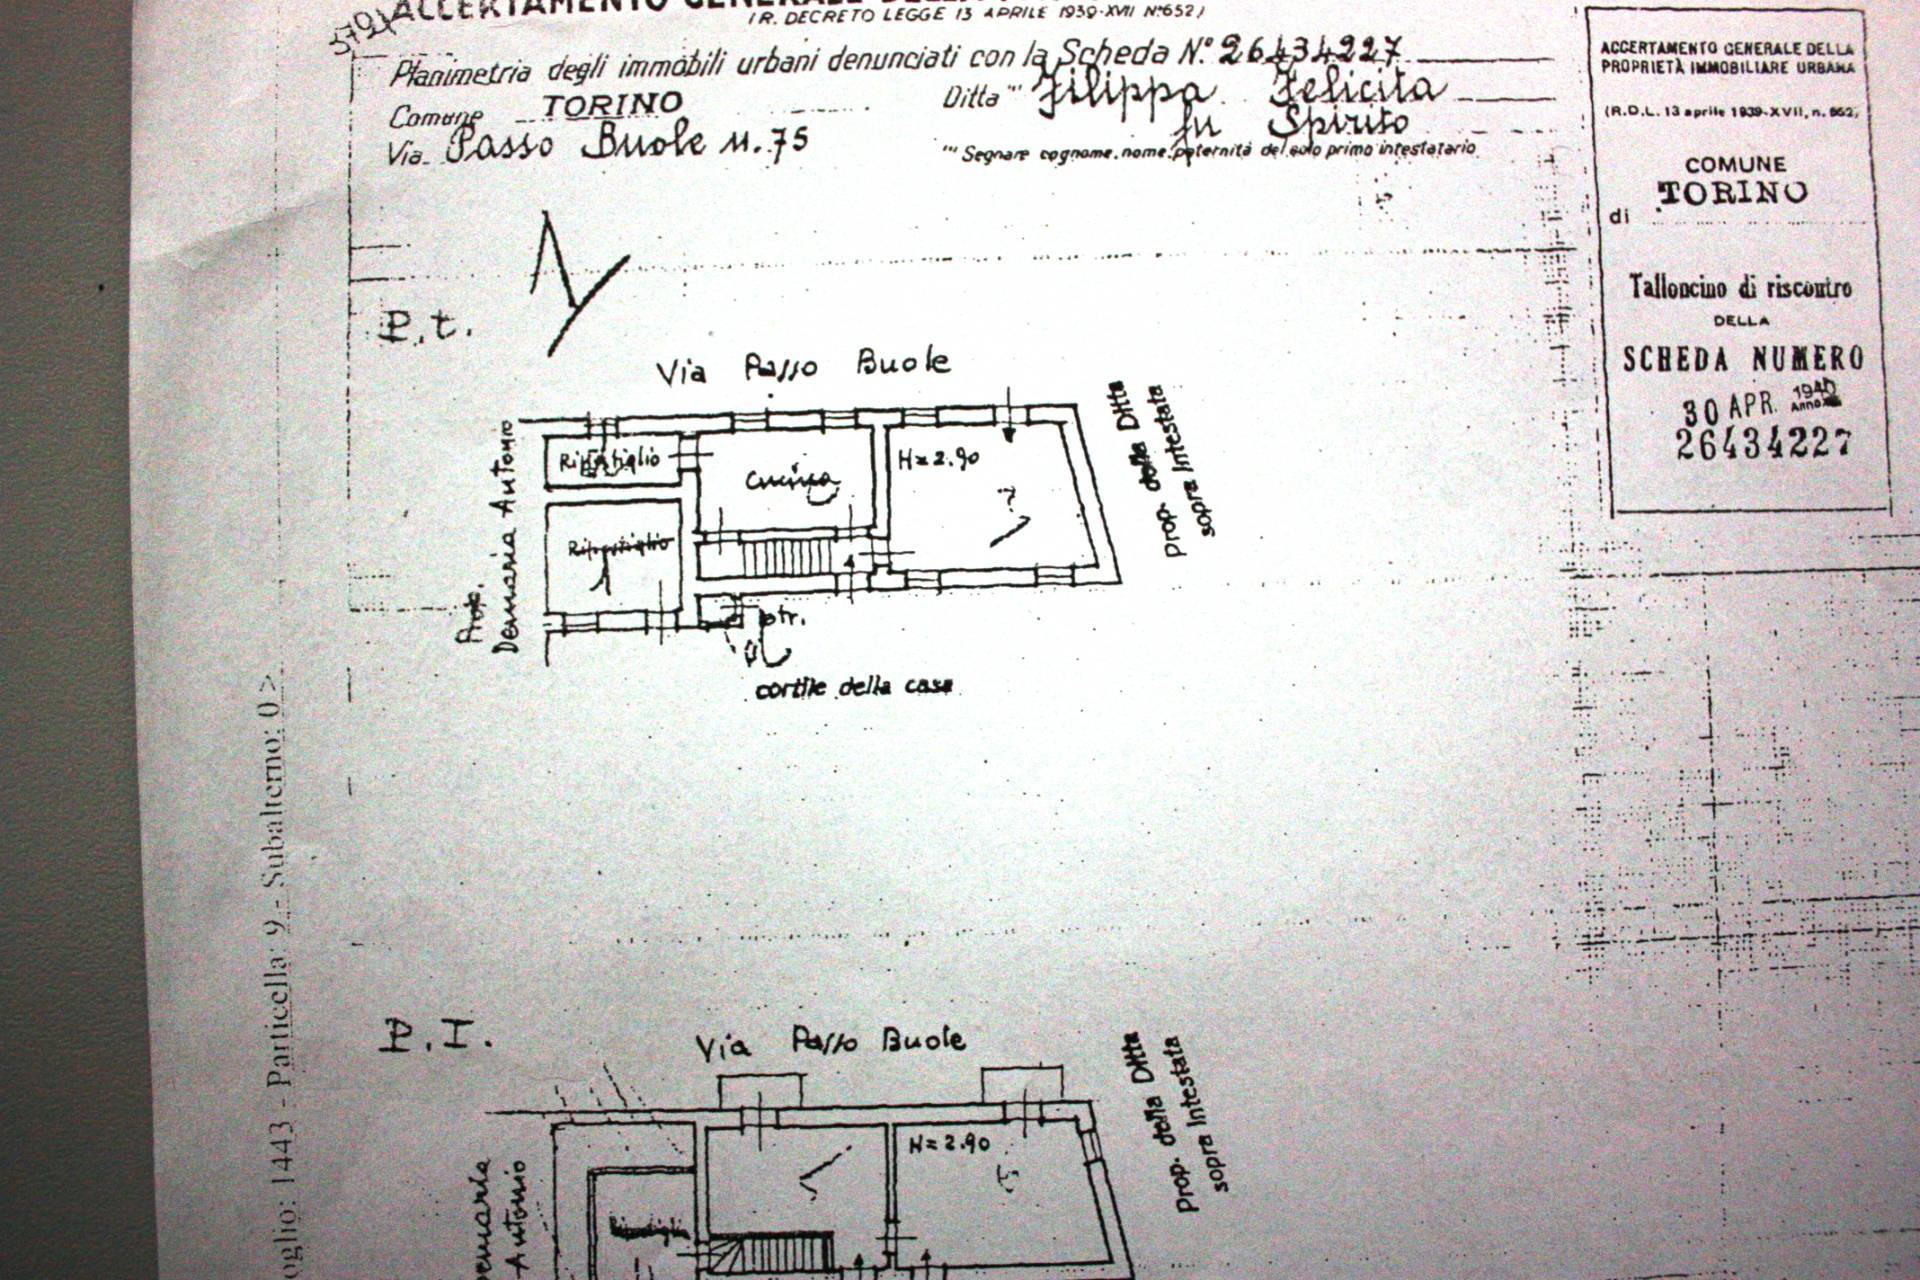 ACCERTAMENTO GENERALE DELLA
(R. DECRETO LEGGE 13 APRILE 1939-XVII N°652)
Planimetria degli immobili urbani denunciati con la Scheda N° 26434227
Comune TORINO
Ditta (1) Filippa Felicita
fu Spirito
Via Passo Buole n. 75
(1) Segnare cognome, nome, paternità del solo primo intestatario
ACCERTAMENTO GENERALE DELLA
PROPRIETÀ IMMOBILIARE URBANA
(R.D.L. 13 aprile 1939-XVII, n. 652)
COMUNE
di TORINO
Talloncino di riscontro
DELLA
SCHEDA NUMERO
30 APR. 1940
Anno
26434227
P.t.
Via Passo Buole
Prop.
Demaria Antonio
Ripostiglio
Cucina
H=2.90
Ripostiglio
prop. della Ditta
sopra Intestata
cortile della casa
Particella: 9 - Subalterno: 0 >
oglio: 1443 -
P.I.
Via Passo Buole
emaria
Antonio
H=2.90
prop. della Ditta
sopra Intestata